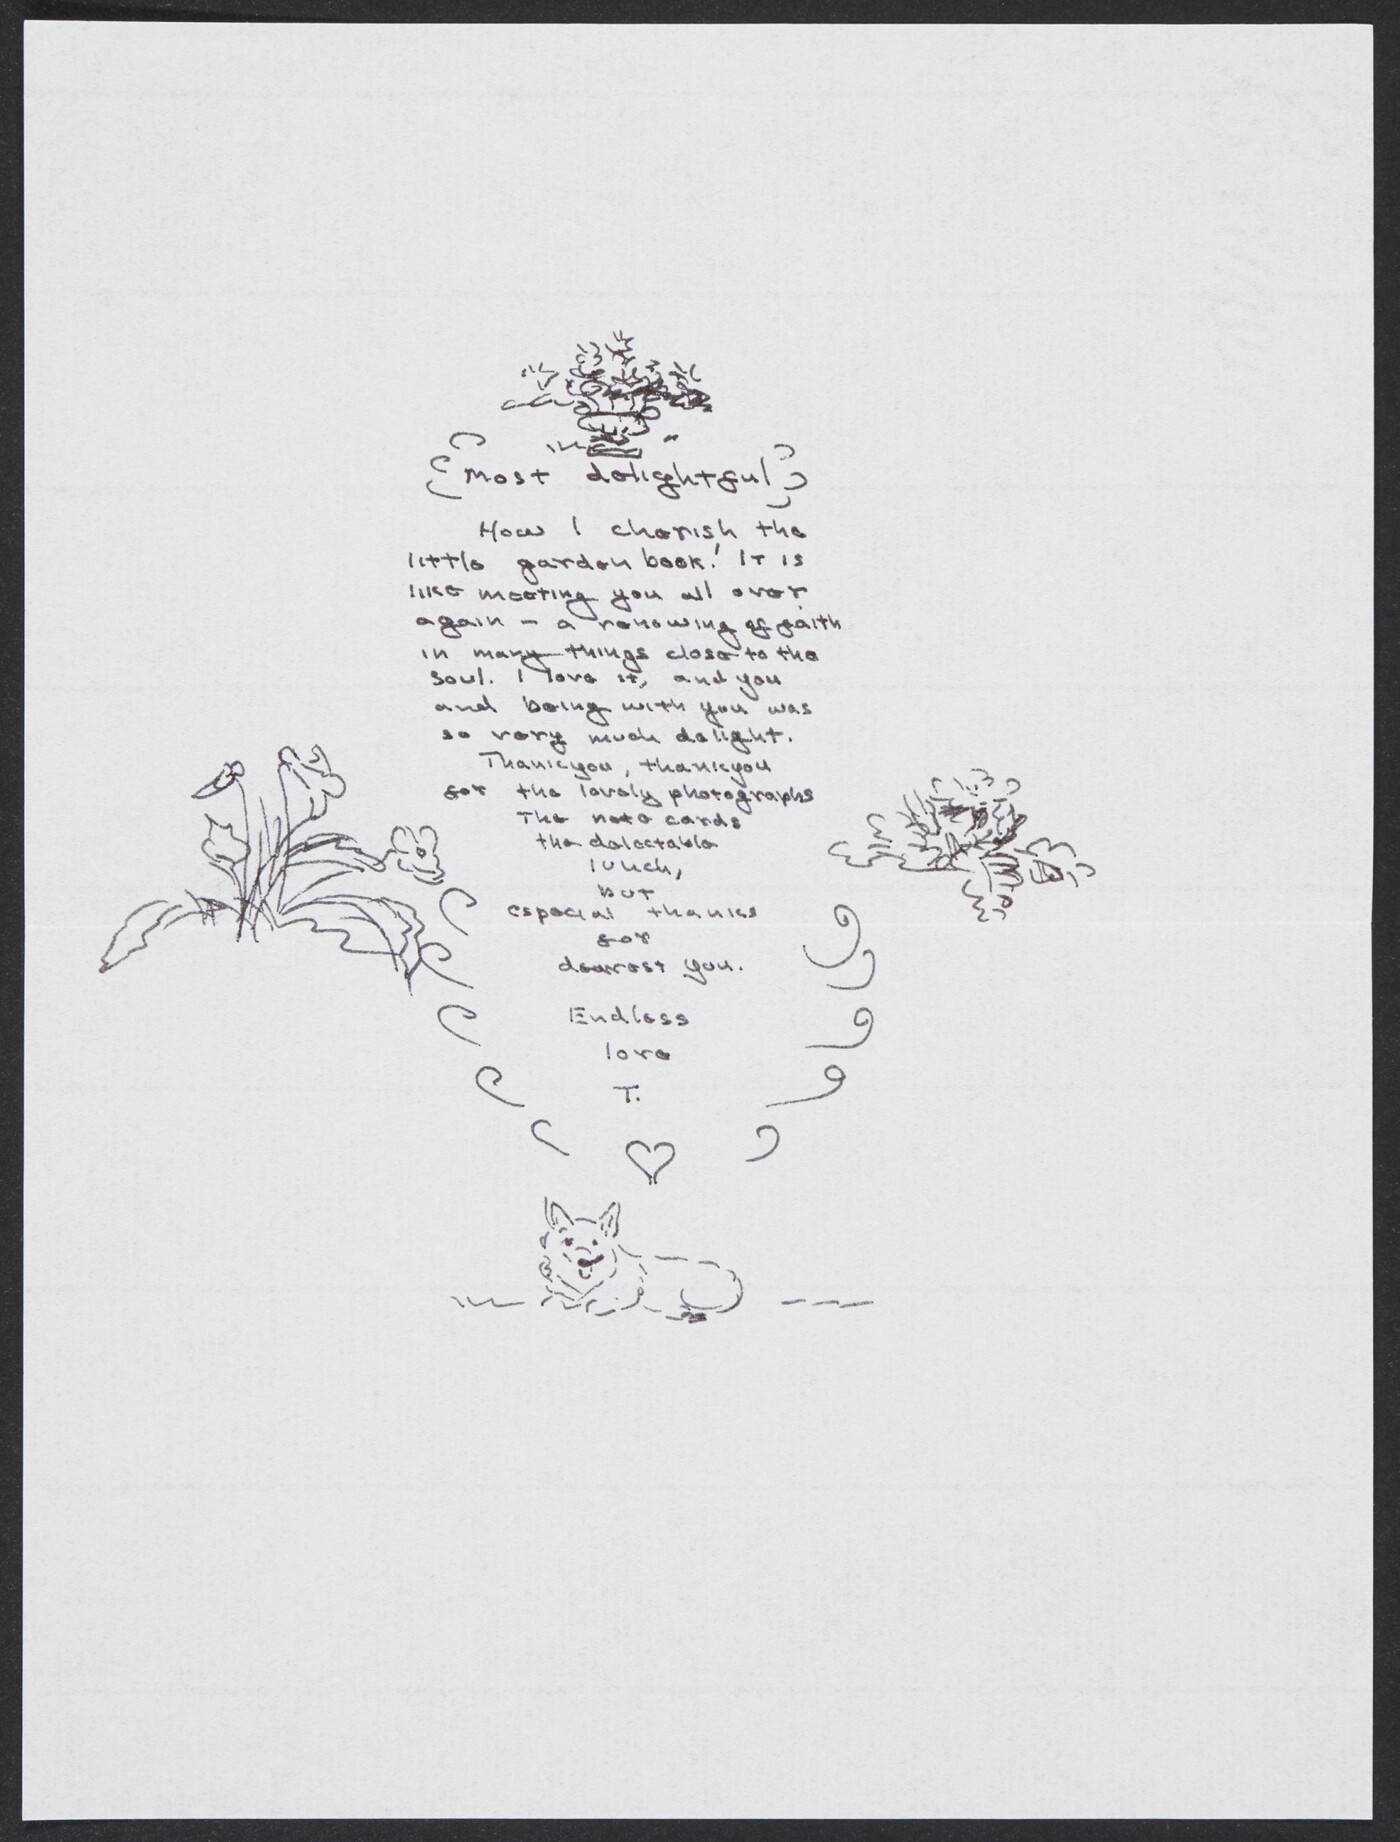 Most delightful
How I cherish the
little garden book! It is
like meeting you all over
again - a renewing of faith
in many things close to the
soul. I love it, and you
and being with you was
so very much delight.
Thankyou, thankyou
for the lovely photographs
The note cards
the delectable
lunch,
but
especial thanks
for
dearest you.
Endless
love
T.